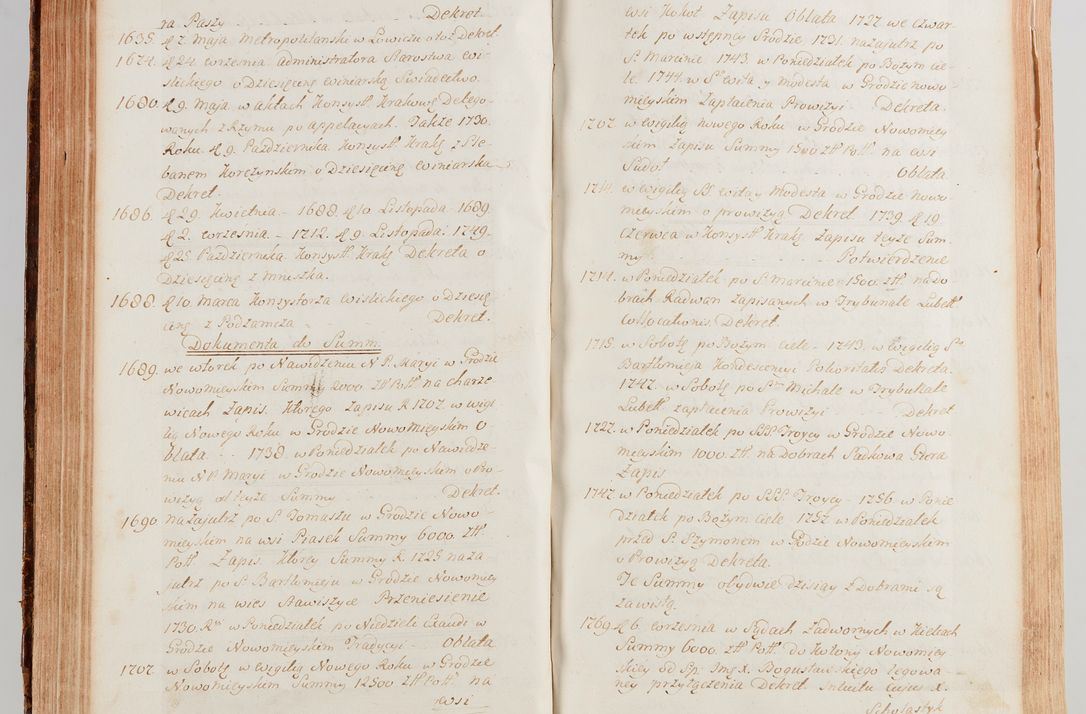 ra Paszy Dekret.
1635. d 7. Maja Metropolitanski w Lowiczu otoż Dekret
1674. d 24. września administratora Starostwa Wi-
slickiego o Dziesięcinę winiarską Swiadectwo.
1680. d 9. Maja w aktach Konsyst. Krakow. Delego-
wanych z Rzymu po Appelacyach. Także 1730.
Roku d 9. Października Konsyst. Krak. z Ple-
banem Korczynskim o Dziesięcinę winiarska
Dekret.
1686. d 29. Kwietnia - 1688. d 10. Listopada - 1689
d 2. września - 1712. d 9. Listopada. 1749.
d 25. Października Konsyst. Krak. Dekreta o
Dziesięcinę z Mruszka.
1688. d 10. Marca Konsystorza wislickiego o Dziesię
cinę z Podzamcza Dekret.
Dokumenta do Summ.
1689. we wtorek po Nawidzeniu N P. Maryi w Grodzie
Nowomieyskim Summy 2000. Złł Poll na charze
wicach Zapis. Ktorego Zapisu R. 1707. w wigi
lią Nowego Roku w Grodzie Nowomieyskim O-
blata .. 1738. w Poniedziałek po Nawiedze-
niu N P. Maryi w Grodzie Nowomieyskim o Pro-
wizyą od teyże Summy Dekret.
1690. nazajutrz po S. Tomaszu w Grodzie Nowo-
mieyskim na wsi Piasek Summy 6000. Złł.
Poll. Zapis. Ktorey Summy R. 1725. naza-
jutrz po S. Bartłomieju w Grodzie Nowomiey
skim na wies Stawiszyce Przeniesienie
1730. R. w Poniedziałek po Niedzieli Exaudi w
Grodzie Nowomieyskim Tradycyi - Oblata
1707. w Sobotę w wigilią Nowego Roku w Grodzie
Nowomieyskim Summy 12500 Złł Poll na
wsi
wsi Zapisu Oblata 1727. we czwar-
tek po wstępney Srodzie 1731. nazajutrz po
S. Marcinie. 1743. w Poniedziałek po Bożym cie-
le. 1744. w S. wita y Modesta w Grodzie nowo-
mieyskim Zapłacenia Prowizyi Dekreta.
1707. w wigilią nowego Roku w Grodzie Nowomiey
skim Zapisu Summy 1500 Złł Poll. na wsi
Sudoł Oblata
1714. w wigilią SS. wita y Modesta w Grodzie nowo-
mieyskim o prowizyą Dekret. 1739. d 19.
Czerwca w Konsyst. Krak. Zapisu teyże Sum-
my Potwierdzenie
1714. w Poniedziałek po S. Marcinie 1500. Złł. na do-
brach Radwan Zapisanych w Trybunale Lubell
Collocationis Dekret.
1718. w Sobotę po Bożym Ciele - 1743. w wigilią S.
Bartłomieja Kondescensyi Dekreta.
1747. w Sobotę po S. Michale w Trybunale
Lubell. zapłacenia Prowizyi Dekret
1727. w Poniedziałek po SSS. Troycy w Grodzie Nowo-
mieyskim 1000. Złł. na Dobrach Sadkowa Gora
Zapis
1747. w Poniedziałek po SSS. Troycy - 1756. w Ponie
działek po Bożym Ciele 1757. w Poniedziałek
przed S. Szymonem w Grodzie Nowomieyskim
o Prowizyą Dekreta.
Te Summy obydwie dzisiay z Dobrami są
zawisłą.
1769. d 6. września w Sądach Zadwornych w Kielcach
Summy 6000. Złł Poll. do Kollony Nowomiey
skiey od Sp. Jmę X. Bogusławskiego legowa-
ney przyłączenia Dekret. intuitu cujus X.
Scholastyk